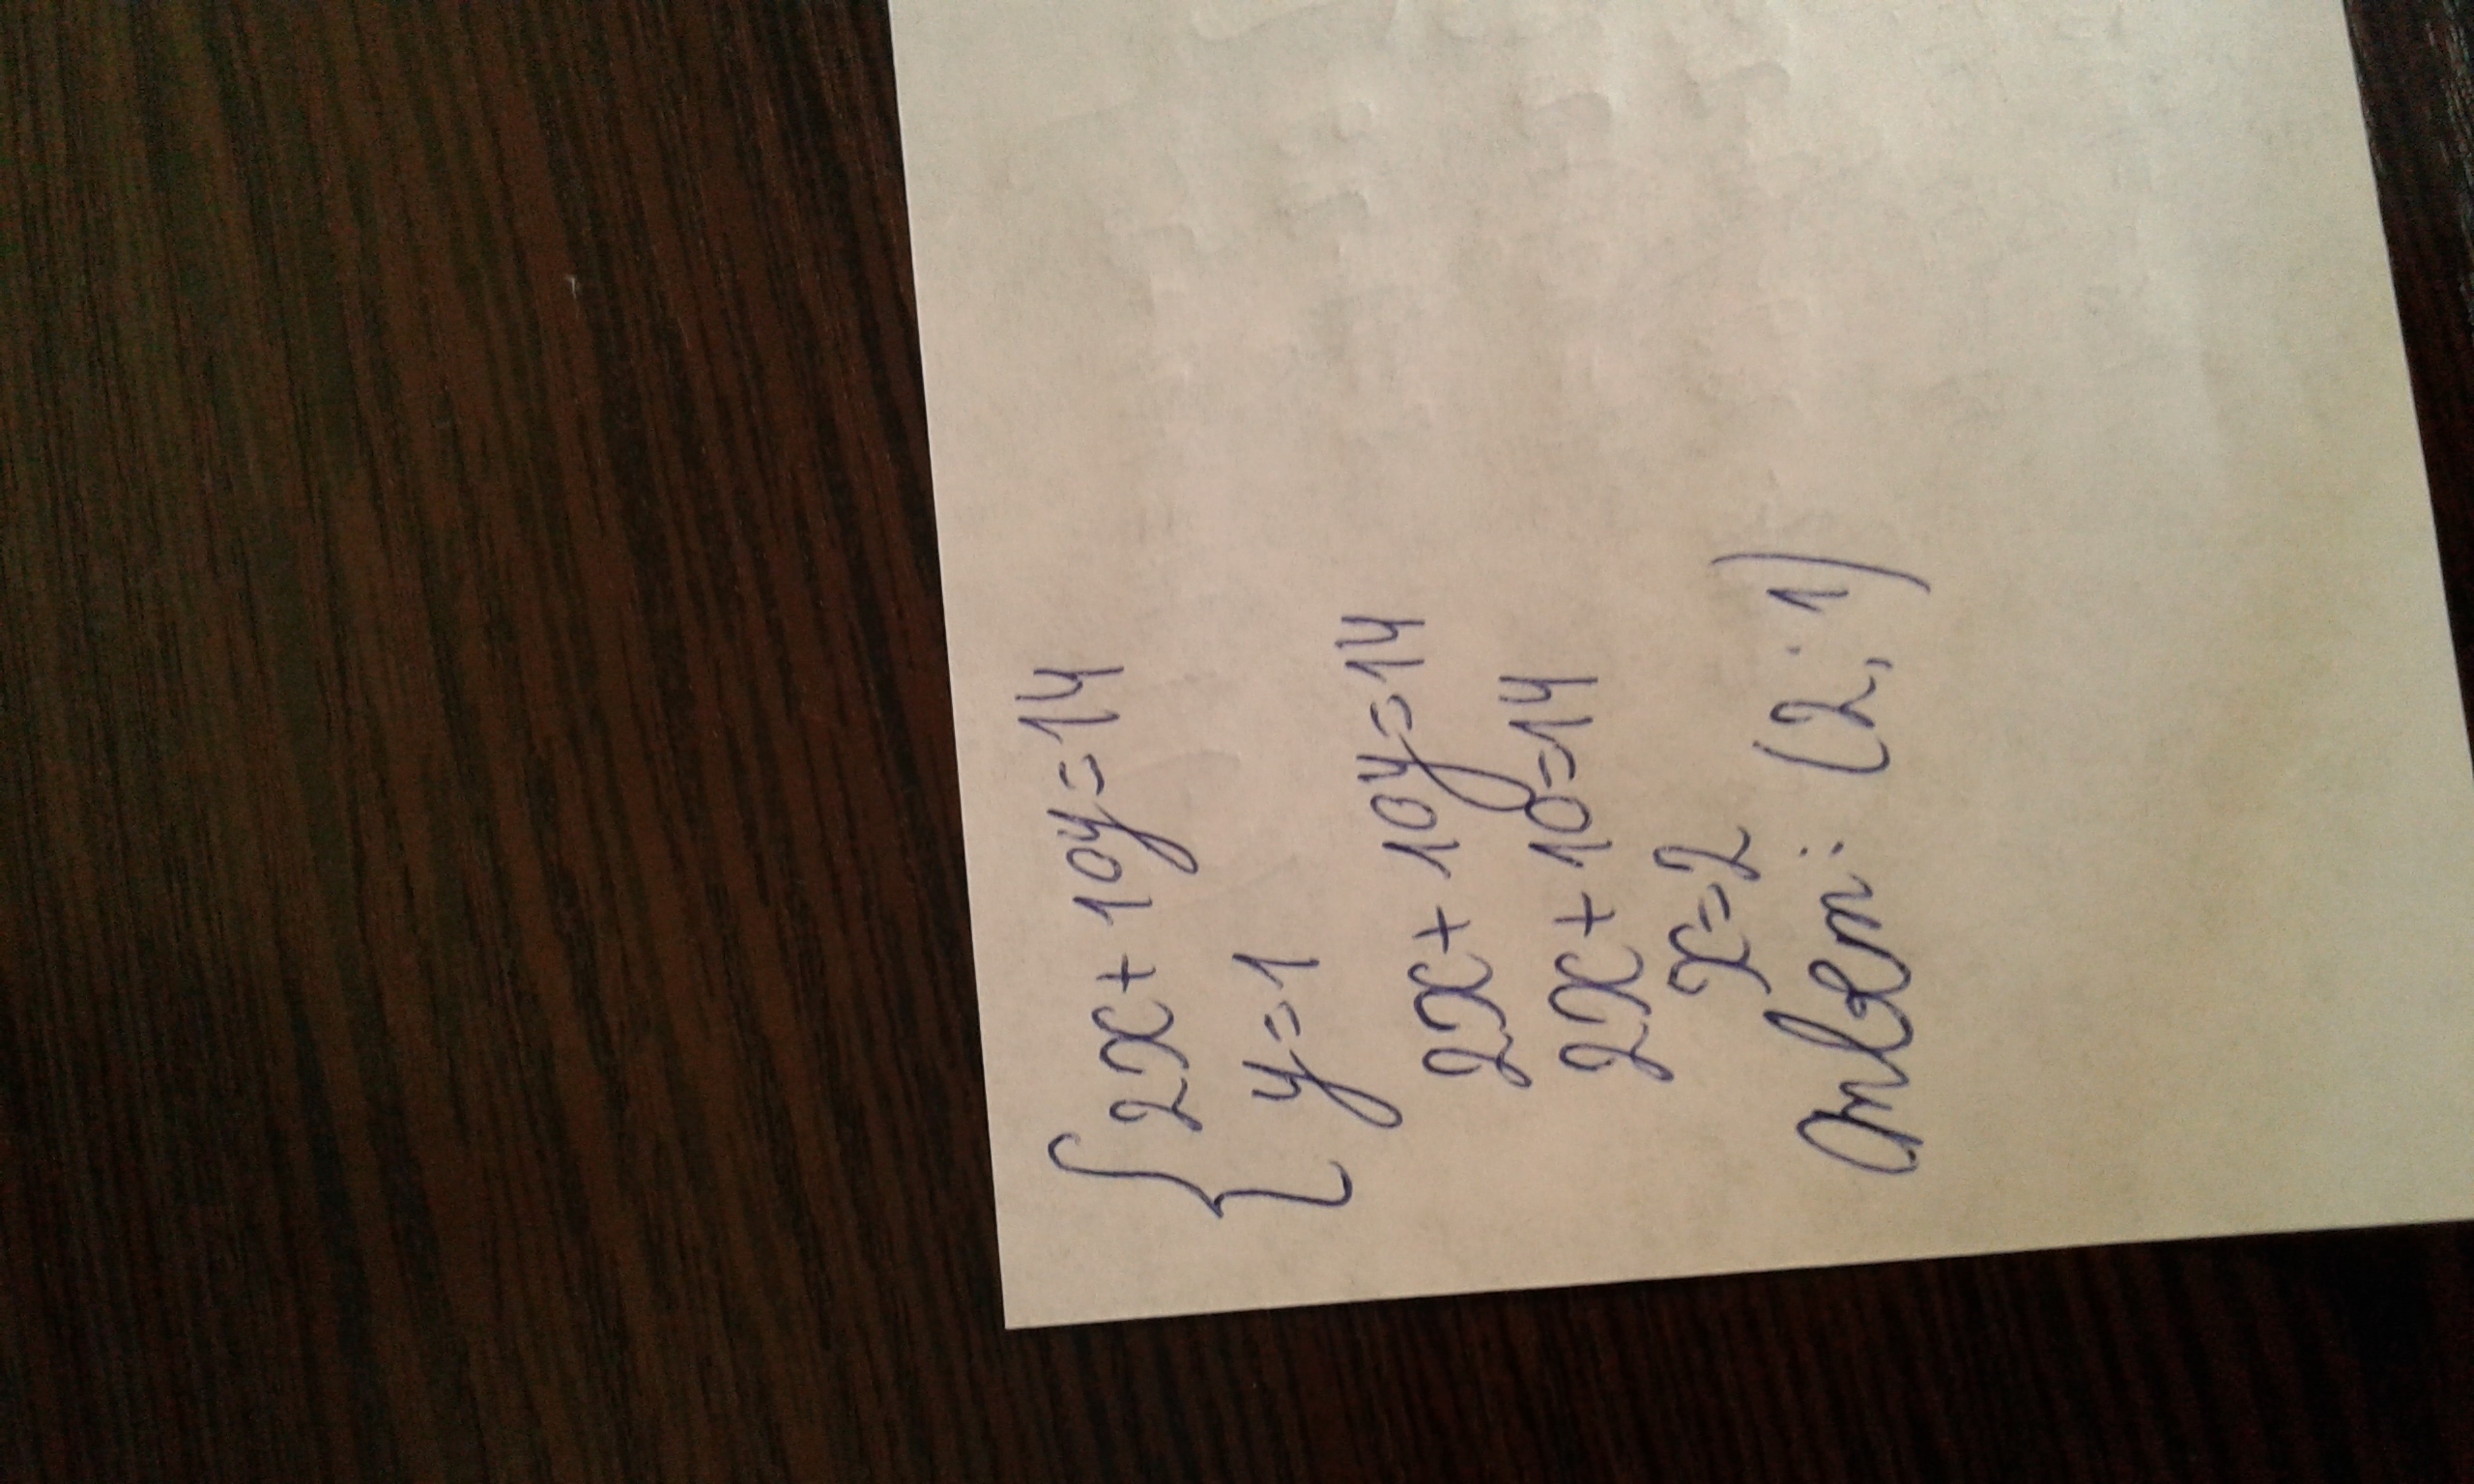 {2x + 10y = 14
y = 1
2x + 10y = 14
2x + 10 = 14
x = 2
Ответ: (2; 1)